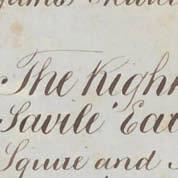 The Righ
Savile Ea
Squire and